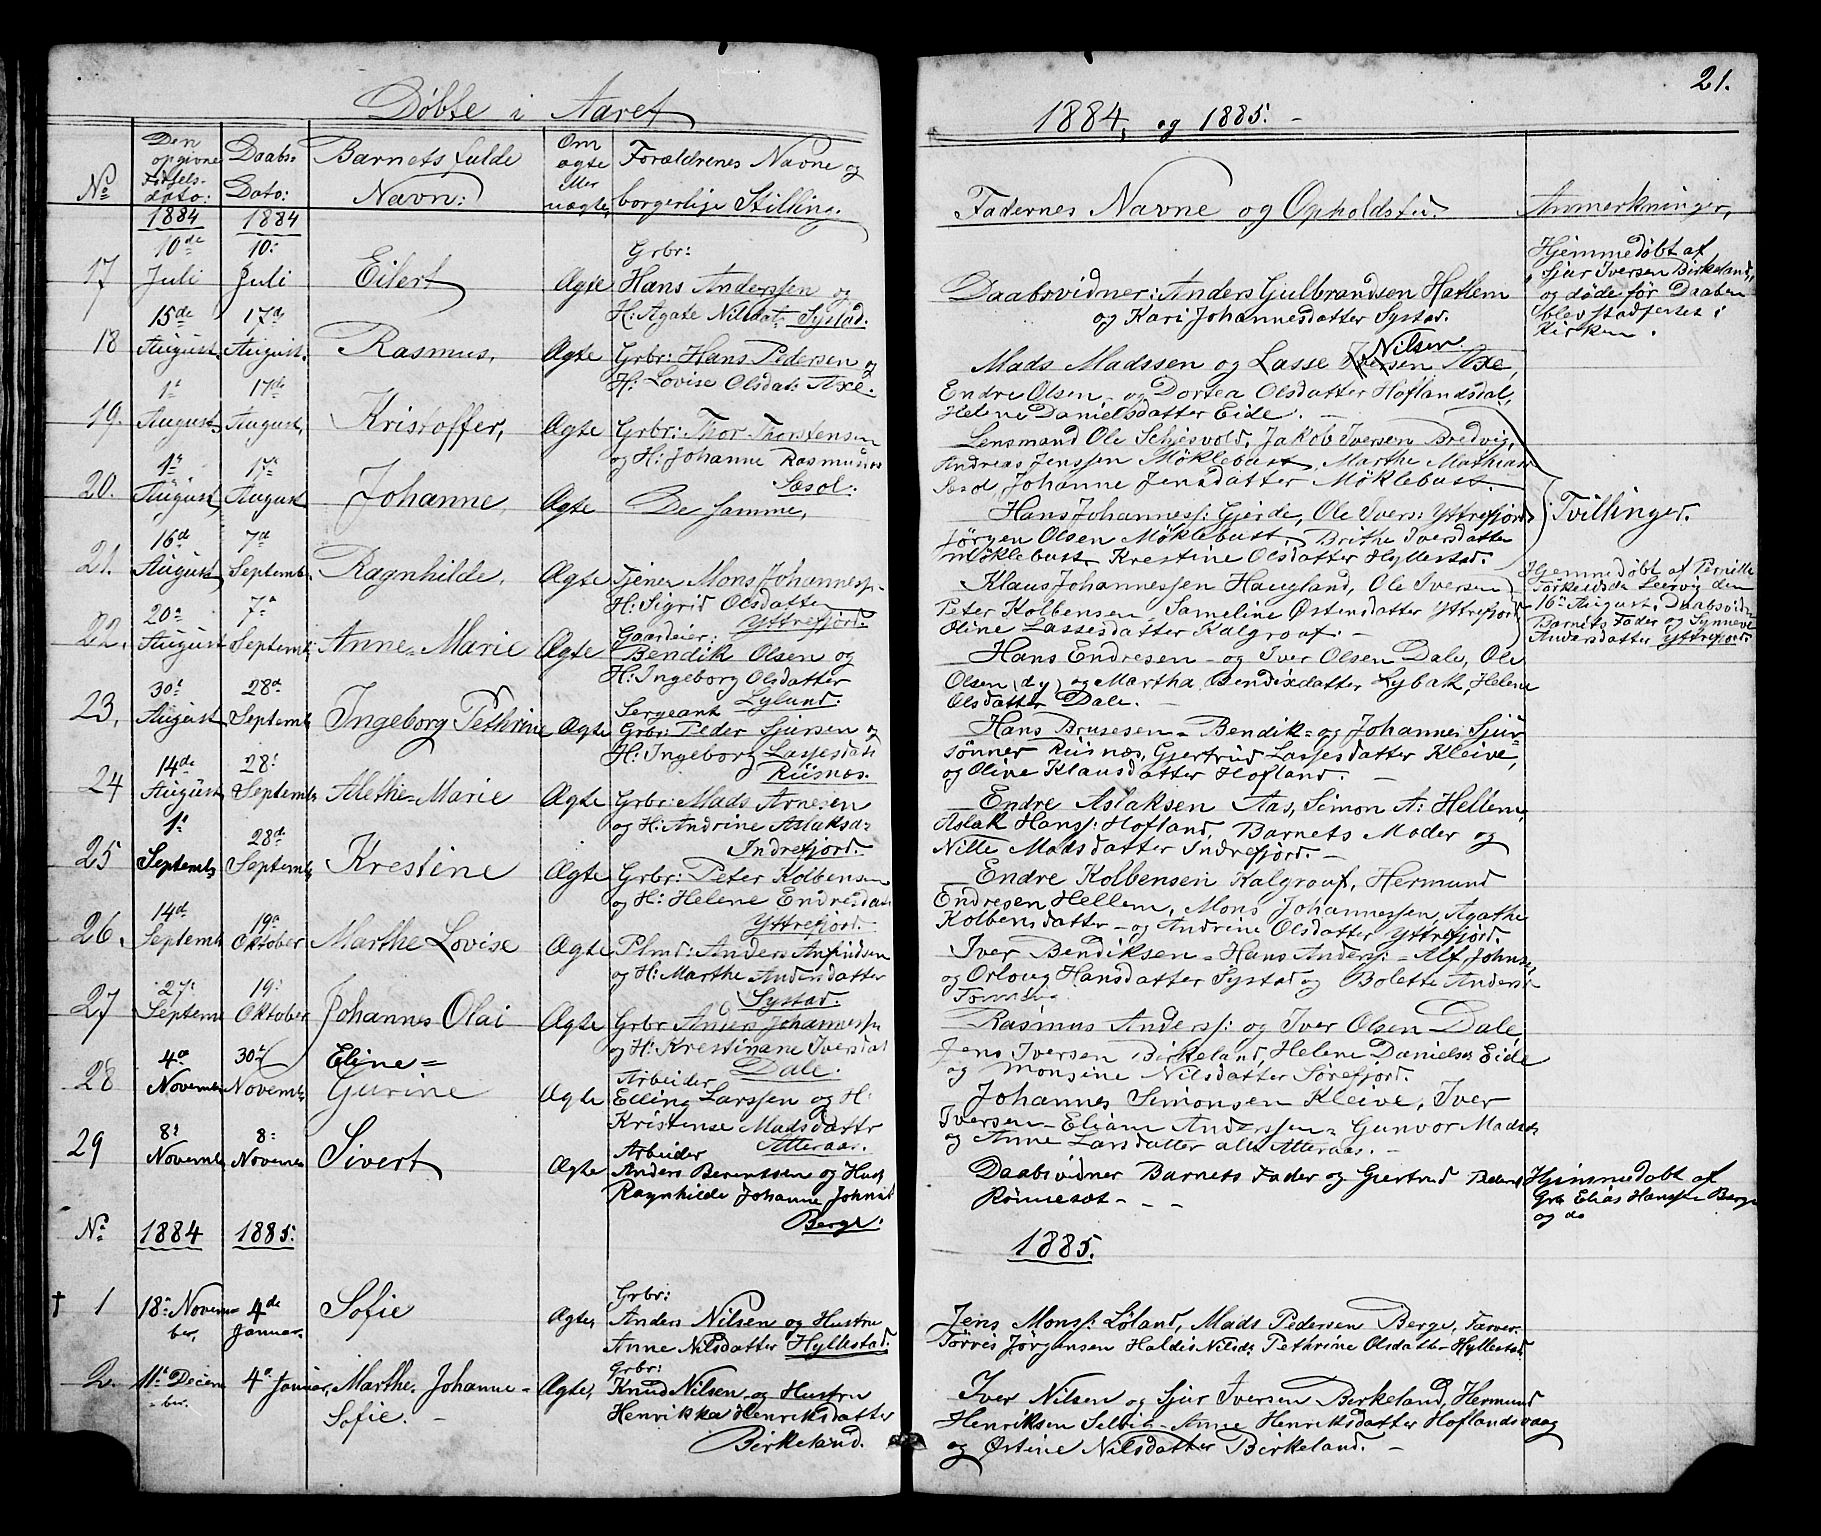 21.
Døbte i Aaret
1884, og 1885.
No
Den opgivne Fødsels-dato:
Daabs-Dato:
Barnets fulde Navn:
Om ægte eller uægte,
Forældrenes Navne og borgerlige Stilling.
Faddernes Navne og Opholdsted.
Anmerkninger,
1884 1884
17 10de Juli 10: Juli Eilert Ægte Grbr:
Hans Anderssen og
H: Agate Nilsdat: Systad:
Daabsvidner: Anders Gulbrandsen Hatlem
og Kari Johannesdatter Systad.
Hjemmedøbt af
Sjur Iversen Birkeland,
og døde før Daaben
blev stadfestet i
Kirken.
18 15de August. 17de August. Rasmus, Ægte Grbr: Hans Pedersen og
H: Lovise Olsdat: Axe.
Mads Madssen og Lasse Nilsen Axe,
Endre Olsen og Dortea Olsdatter Hoflandsdal,
Helene Danielsdatter Eide. —
19. 1t August. 17de August, Kristoffer, Ægte Grbr: Thor Thorstensen
og H: Johanne Rasmusdat
Sæsol:
Lensmand Ole Schjesvold, Jakob Iversen Bredvig,
Andreas Jenssen Møklebust, Marthe Mathias
Sæsol Johanne Jensdatter Møklebust.
20. 1t August August Johanne, Ægte De samme,
Hans Johanness: Gjerde, Ole Ivers: Yttrefjord
Jørgen Olsen Møklebust, Brithe Iversdatter
Møklebust Krestine Olsdatter Hyllestad.
Tvillinger.
21. 16de August 7de Septemb. Ragnhilde, Ægte Tjener Mons Johannessen
H: Sigrid Olsdatter
Yttrefjord.
Klaus Johannessen Haugland, Ole Iversen
Peter Kolbensen, Sameline Østensdatter Yttrefjord
Oline Lassesdatter Kalgraaf. —
Hjemmedøbt af Pernille
Leervig den
16de August. Daabsvidne
Barnets Fader og Synneve
Andersdatter Yttrefjord
22. 20de August 7de Septemb: Anne-Marie Ægte Gaardeier:
Bendik Olsen og
H: Ingeborg Olsdatter
Lylund.
Hans Endresen - og Iver Olsen Dale, Ole
Olsen (dy) og Martha Bendixdatter Lybak, Helene
Olsdatter Dale. —
23. 30t August 28de Septemb Ingeborg Pethrine Ægte Sergeant
Grbr: Peder Sjursen og
H: Ingeborg Lassesdat
Riisnæs.
Hans Brusesen - Bendik- og Johannes Sjur-
sønner Riisnæs, Gjertrud Lassesdatter Kleive,
og Oline Klausdatter Hofland. —
24 14de August 28t Septemb Alethe-Marie Ægte Grbr: Mads Arnesen
og H: Andrine Aslaksd-
Indrefjord.
Endre Aslaksen Aas, Simon A: Hellem,
Aslak Hanss: Hofland, Barnets Moder og
Nille Madsdatter Indrefjord. —
25 1t Septemb 28de Septemb Krestine Ægte Grbr: Peter Kolbensen
og H: Helene Endresdat
Yttrefjord.
Endre Kolbensen Kalgraaf, Hermund
Endresen Hellem, Mons Johannessen, Agathe
Kolbensdatter - og Andrine Olsdatter Yttrefjord.
26. 14de Septemb 19de Oktober Marthe Lovise Ægte Plmd: Anders Arfindsen
og H: Marthe Andersdatter
Systad.
Iver Bendiksen - Hans Anders: - Alf Johns:
og Orloug Hansdatter Systad og Bolette Andersd
27 27t Septemb 19: Oktober Johannes Olai Ægte Grbr Anders Johannessen
og H: Krestinane Iversdat
Dale.
Rasmus Anderss: og Iver Olsen Dale,
Jens Iversen Birkeland, Helene Danielsd Eide
og Monsine Nilsdatter Sørefjord.
28 4de Novemb 30te Novemb. Eline-
Gurine Ægte Arbeider
Elling Larssen og H:
Kristense Madsdatter
Atteraas.
Johannes Simonsen Kleive, Iver
Iversen - Eliam Anderssen - Gunvor Madsd
og Anne Larsdatter alle Atteraas. —
29 8t Novemb 8: Novemb Sivert Ægte Arbeider
Anders Berentssen og Hust
Ragnhilde Johanne Johnsd
Berge.
Daabsvidner Barnets Fader og Gjertrud
Rønneset - - -
Hjemmedøbt af
Grb Elias Hanssen Berge
og do
No 1884 1885.
1885.
† 1 18de Novem-
ber, 4de
Januar. Sofie Ægte, Grbr:
Anders Nilsen og Hustru
Anne Nilsdatter Hyllestad.
Jens Monss: Løland, Mads Pedersen Berge, Farver
Tørris Jørgensen Haldis Nilsd: Pethrine Olsdatter Hyllestad.
2. 11te Decem-
ber. 4de Januar, Marthe Johanne-
Sofie. - Ægte, Grbr:
Knud Nilsen og Hustru
Henrikka Henriksdatter
Birkeland.
Iver Nilsen og Sjur Iversen Birkeland, Hermund
Henriksen Selvik - Anne Henriksdatter Hoflandsvaag
og Østine Nilsdatter Birkeland. —